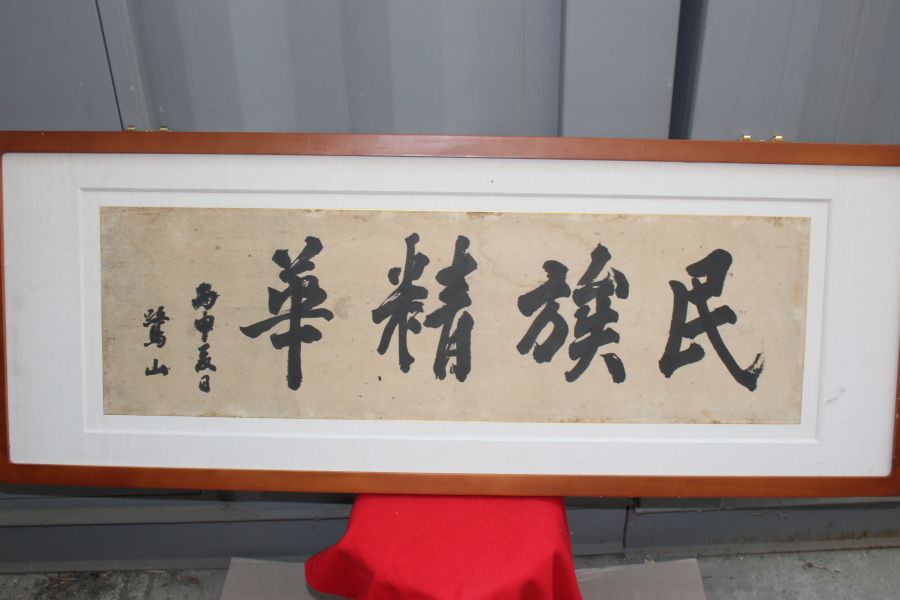 民族精華
丙申夏日
鷺山